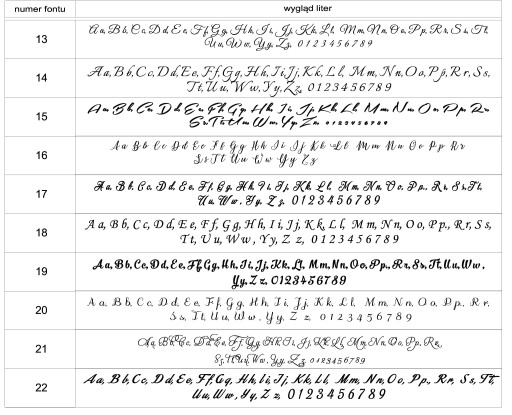 numer fontu wygląd liter
13 Aa, Bb, Cc, Dd, Ee, Ff, Gg, Hh, Ii, Jj, Kk, Ll, Mm, Nn, Oo, Pp, Rr, Ss, Tt,
Uu, Ww, Yy, Zz, 0123456789
14 Aa, Bb, Cc, Dd, Ee, Ff, Gg, Hh, Ii, Jj, Kk, Ll, Mm, Nn, Oo, Pp, Rr, Ss,
Tt, Uu, Ww, Yy, Zz, 0123456789
15 Aa, Bb, Cc, Dd, Ee, Ff, Gg, Hh, Ii, Jj, Kk, Ll, Mm, Nn, Oo, Pp, Rr
Ss, Tt, Uu, Ww, Yy, Zz, 0123456789
16 Aa Bb Cc Dd Ee Ff Gg Hh Ii Jj Kk Ll Mm Nn Oo Pp Rr
Ss Tt Uu Ww Yy Zz
17 Aa, Bb, Cc, Dd, Ee, Ff, Gg, Hh, Ii, Jj, Kk, Ll, Mm, Nn, Oo, Pp, Rr, Ss, Tt,
Uu, Ww, Yy, Zz, 0123456789
18 Aa, Bb, Cc, Dd, Ee, Ff, Gg, Hh, Ii, Jj, Kk, Ll, Mm, Nn, Oo, Pp, Rr, Ss,
Tt, Uu, Ww, Yy, Zz, 0123456789
19 Aa, Bb, Cc, Dd, Ee, Ff, Gg, Hh, Ii, Jj, Kk, Ll, Mm, Nn, Oo, Pp, Rr, Ss, Tt, Uu, Ww,
Yy, Zz, 0123456789
20 Aa, Bb, Cc, Dd, Ee, Ff, Gg, Hh, Ii, Jj, Kk, Ll, Mm, Nn, Oo, Pp, Rr,
Ss, Tt, Uu, Ww, Yy, Zz, 0123456789
21 Aa, Bb, Cc, Dd, Ee, Ff, Gg, Hh, Ii, Jj, Kk, Ll, Mm, Nn, Oo, Pp, Rr,
Ss, Tt, Uu, Ww, Yy, Zz, 0123456789
22 Aa, Bb, Cc, Dd, Ee, Ff, Gg, Hh, Ii, Jj, Kk, Ll, Mm, Nn, Oo, Pp, Rr, Ss, Tt,
Uu, Ww, Yy, Zz, 0123456789